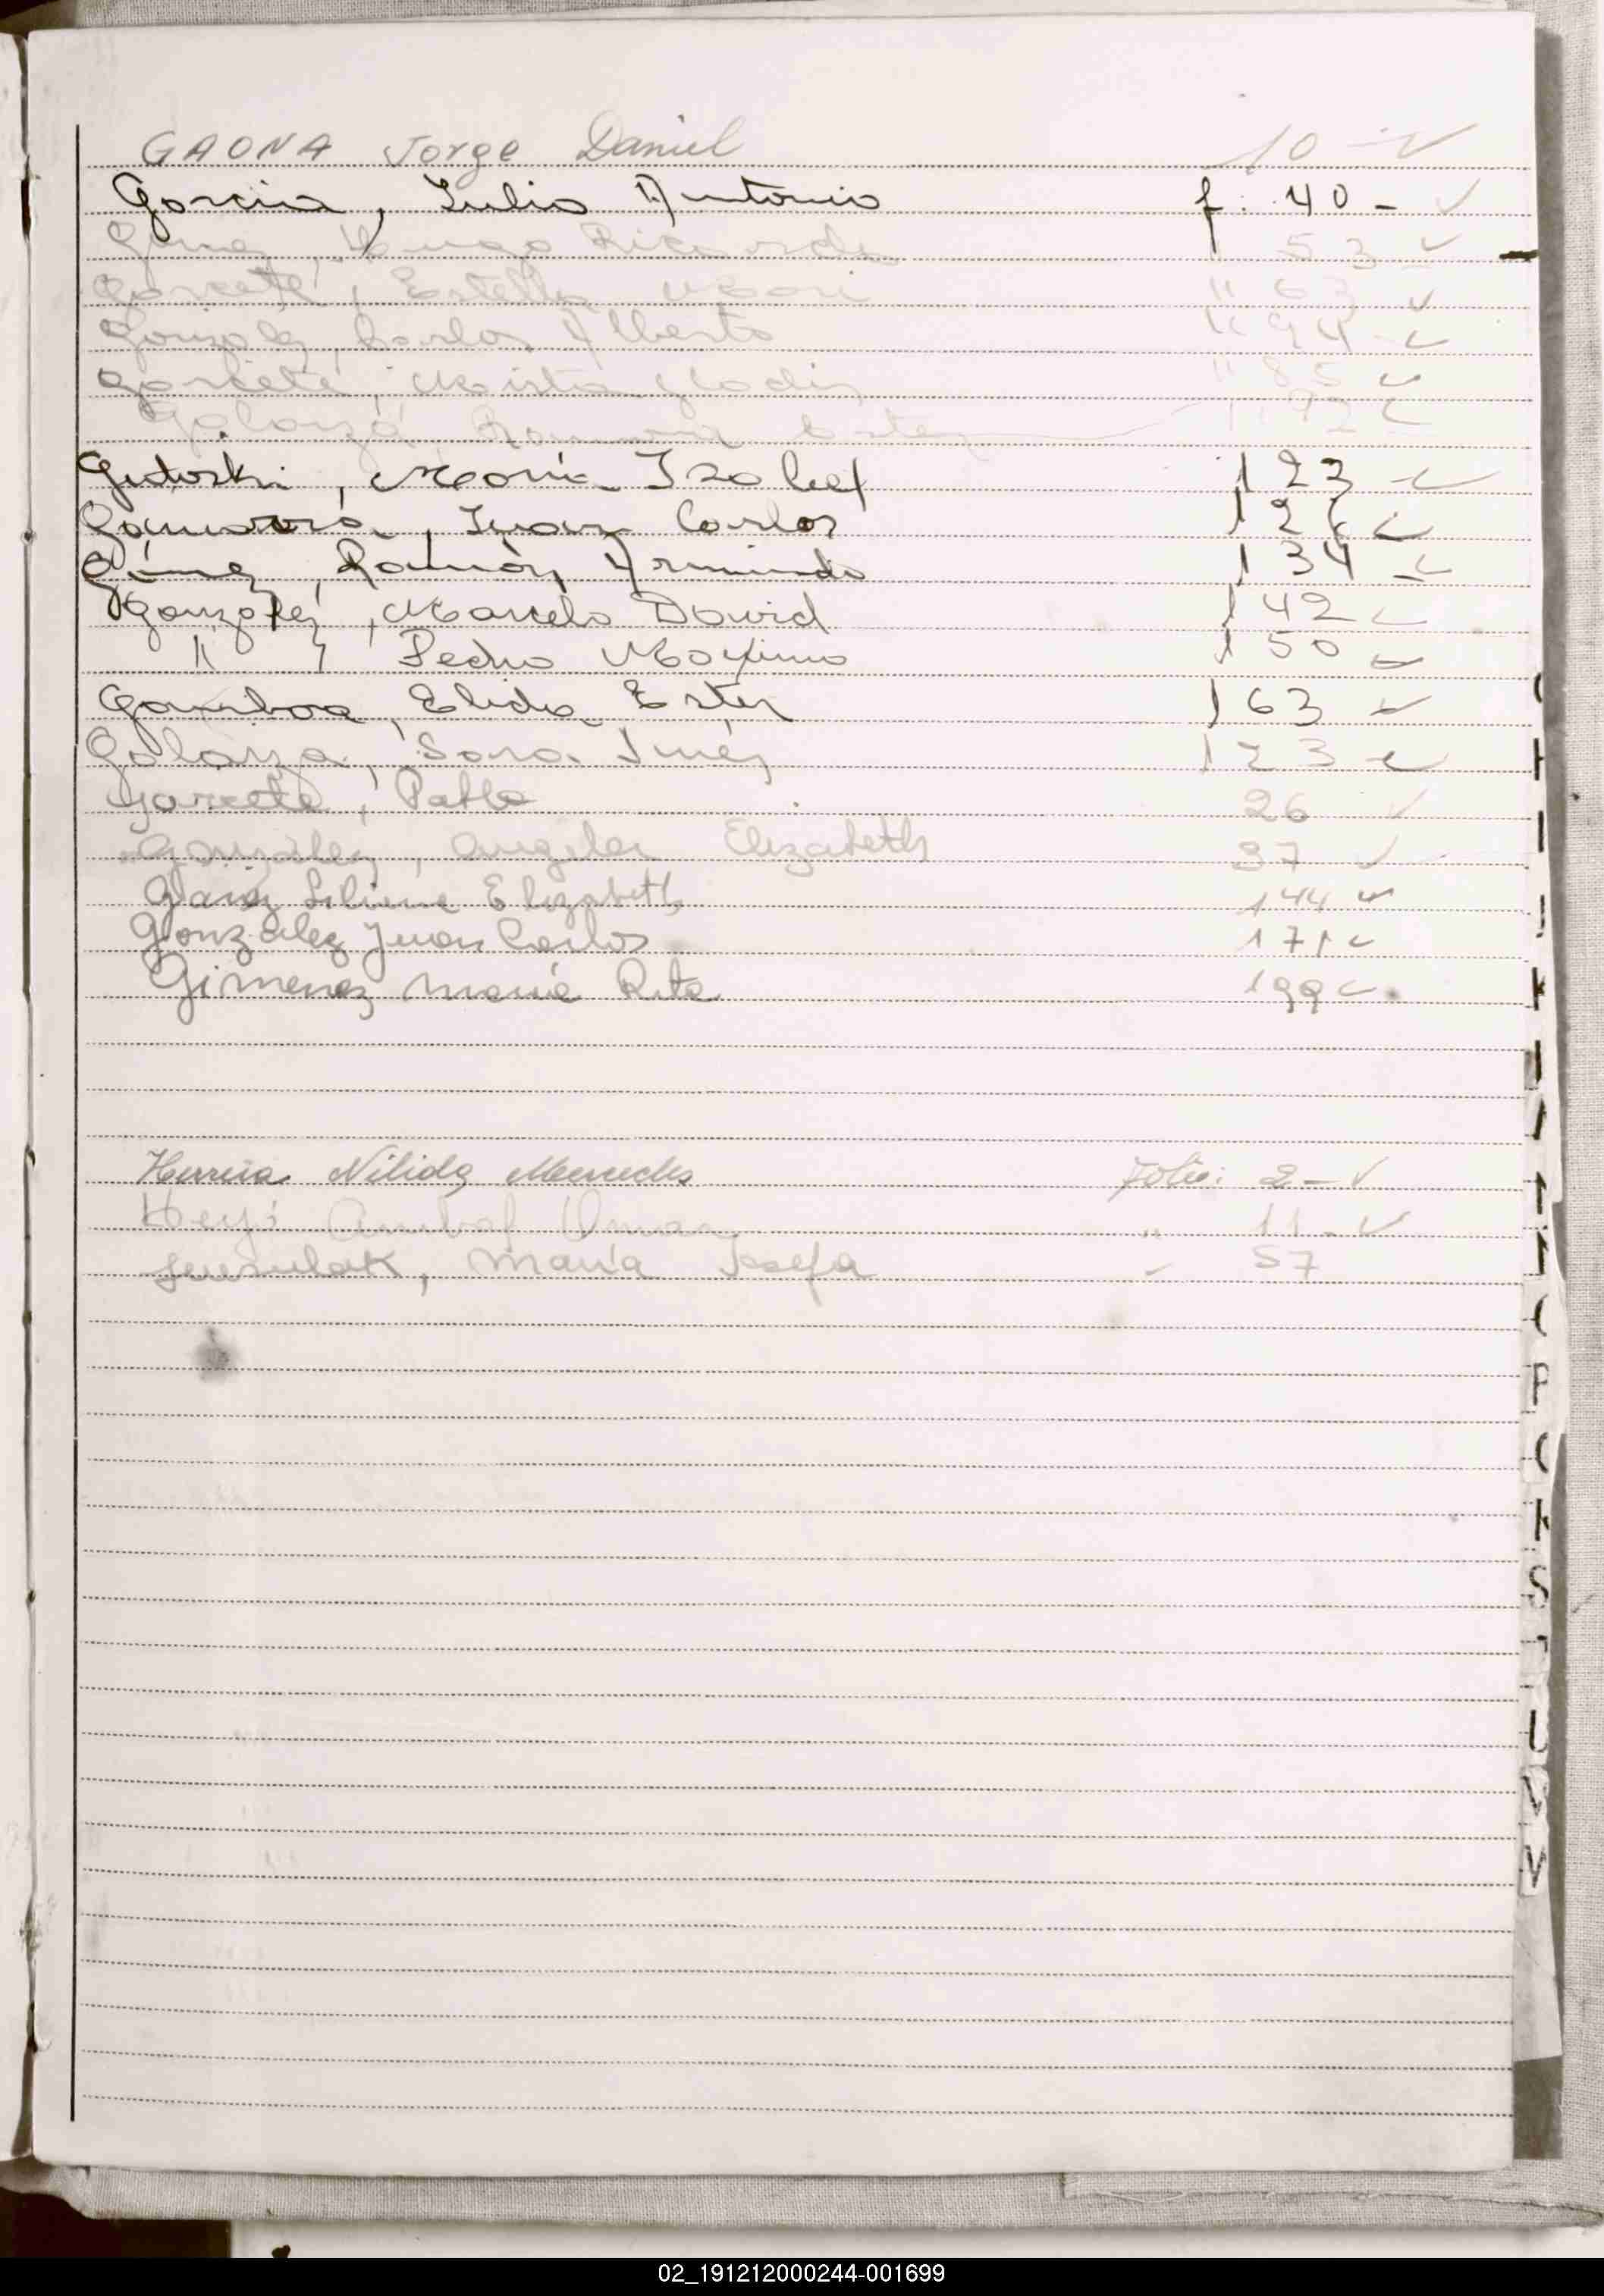 GAONA Jorge Daniel 10 - ✓
Garcia, Julio Antonio f. 40 - ✓
Hugo Ricardo 53 ✓
Garcete, Estella Mari " 63 ✓
Gonzalez, Carlos Alberto " 94 - ✓
Garcete, Mirta Gladis " 85 ✓
Galarza Ramona Ester ✓
María Isabel 123 ✓
Gamarra, Juan Carlos ✓
Ramón Armindo 134 ✓
Gonzalez, Marcelo David 142 ✓
" , Pedro Maximo 150 ✓
Gamboa, Elida Ester 163 ✓
Galarza, Sara Inés 173 ✓
Garcete, Pablo 26 ✓
González, Angela Elizabeth 37 ✓
Liliana Elizabeth 144 ✓
González Juan Carlos 171 ✓
Gimenez María Rita 199 ✓
Herrera Nélida Mercedes Folio: 2 - ✓
Anibal Omar " 11 - ✓
María Josefa - 57
P
S
V
V
02_191212000244-001699